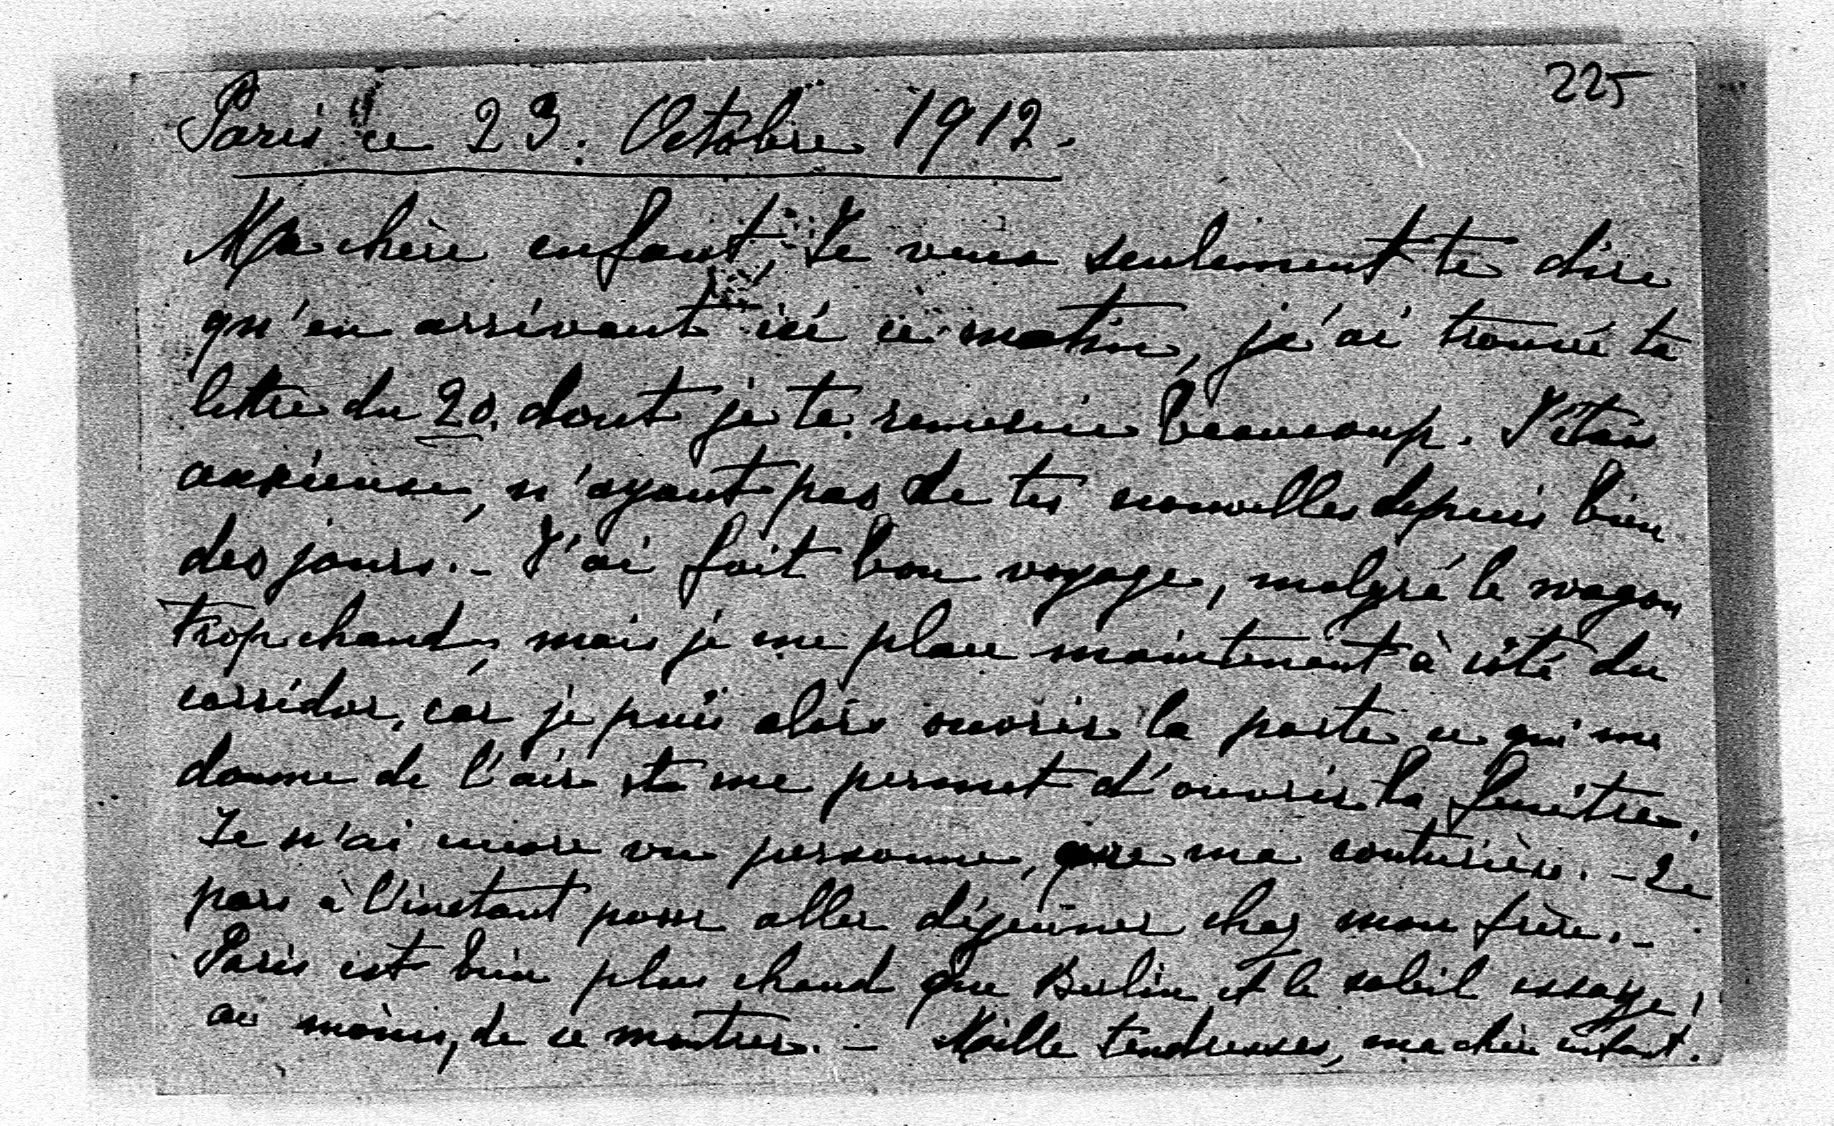 225
Paris ce 23. Octobre 1912.
Ma chère enfant, Je veux seulement te dire
qu'en arrivant ici ce matin, j'ai trouvé ta
lettre du 20. dont je te remercie beaucoup. J'étais
anxieuse, n'ayant pas de tes nouvelles depuis bien
des jours. - J'ai fait bon voyage, malgré le wagon
trop chaud, mais je me place maintenant à côté du
corridor, car je puis alors ouvrir la porte ce qui me
donne de l'air et me permet d'ouvrir la fenêtre.
Je n'ai encore vu personne, que ma couturière. - Je
pars à l'instant pour aller déjeuner chez mon frère. -
Paris est bien plus chaud que Berlin et le soleil essaye,
au moins, de se montrer. - Mille tendresses, ma chère enfant.